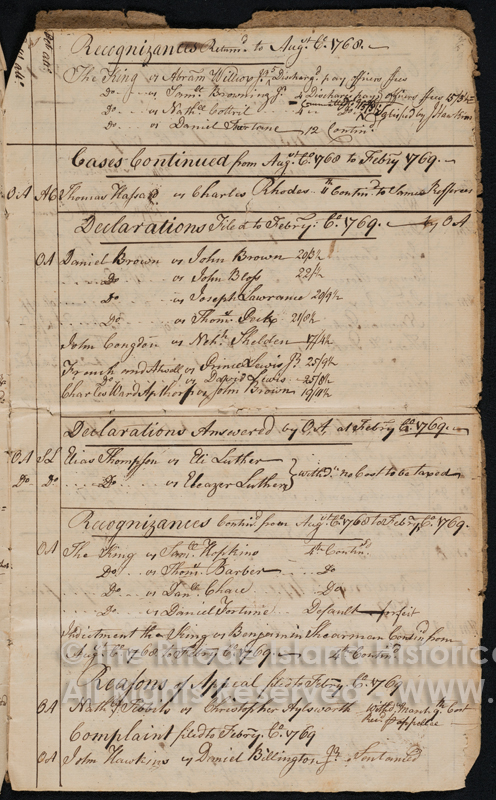 Recognizances Return'd to Augt. Ct. 1768.
The King vs Abram Wilcox Jr. Discharg'd pay officers fees
Do ... vs Saml. Browning Jr. Discharge pay officers fees
Do ... vs Nathl. Cottril
Do ... vs Daniel Fortane 12 Contind.
Cases Continued from Augt. Ct. 1768 to Febry 1769.
OA Thomas Hassard vs Charles Rhodes 11th Contind. to Same
Declarations Filed to Febry. Ct. 1769. by OA
OA Daniel Brown vs John Brown 20/3½
Do vs John Bloss 22/½
Do vs Joseph Lawrance 20/9½
Do vs Thoms. Peck 21/6½
John Congdon vs Shelden 17/4½
French and Atwell vs Prince Lewis Jr. 25/9½
Do vs David Lewis 25/8½
Charles Ward Apthorp vs John Brown 19/11½
Declarations Answered by OA, at Febry Ct. 1769.
OA SL Elias Thompson vs Eli Luther
Do Do Do vs Ebeazer Luther withd. no Cost to be taxed
Recognizances Contind. from Augt. Ct. 1768 to Febry. Ct. 1769.
OA The King vs Saml. Hopkins 4th Contind.
Do vs Thoms. Barber Do
Do vs Danll. Chace Do
Do vs Daniel Fortune Default forfeit
Indictment the King vs Benjamin Shearman Contind. from
Augt. Ct. 1768 to Febry Ct. 1769 Contind.
Reasons of Appeal filed to Febry. Ct. 1769
OA vs Christopher Aylsworth withd. March Cost
appellee
Complaint filed to Febry. Ct. 1769
OA John Hawkins vs Daniel Billington Jr. Continued
© The Rhode Island Historical
All Rights Reserved www.